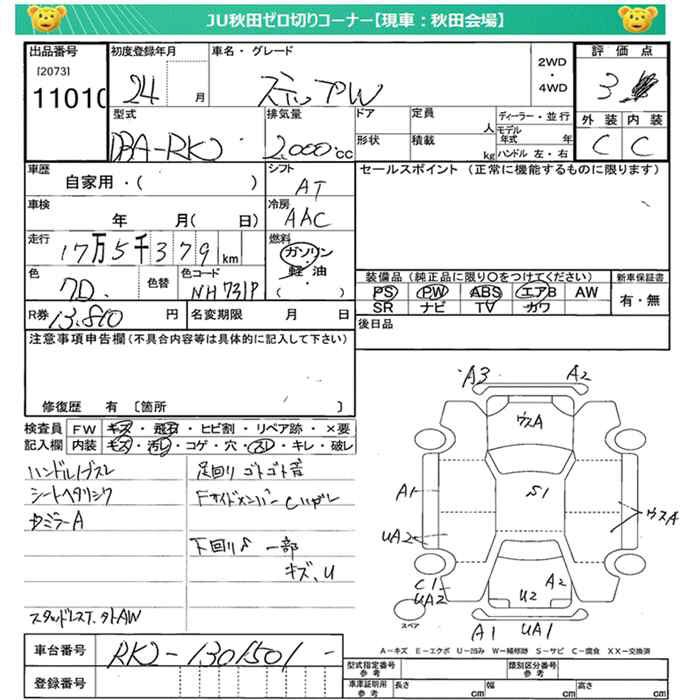 JU秋田ゼロ切りコーナー【現車：秋田会場】
出品番号 初度登録年月 車名・グレード 2WD・4WD 評価点
[2073]
11010 24 月 ステップW 3
外装 内装
C C
型式 排気量 ドア 定員 人 ディーラー・並行
DBA-RK2 2,000cc 形状 積載 kg モデル年式 年
ハンドル 左・右
車歴 シフト セールスポイント（正常に機能するものに限ります）
自家用・( ) AT
車検 冷房
年 月( 日) AAC
走行 燃料
17万5千379km ガソリン・軽油
( )
色 色替 色コード
NH731P
装備品（純正品に限り○をつけてください） 新車保証書
PS PW ABS エアB AW 有・無
SR ナビ TV カワ
R券 13,810円 名変期限 月 日 後日品
注意事項申告欄(不具合内容等は具体的に記入して下さい)
修復歴 有 〔箇所 〕
検査員記入欄 FW キズ・飛石・ヒビ割・リペア跡・×要
内装 キズ・汚レ・コゲ・穴・スレ・キレ・破レ
ハンドルノブスレ
シートヘタリシワ
サミラーA
スタッドレスT.
足回りゴトゴト音
下回りS 一部
キズ、U
A3 A2
ウスA
A1 S1 ウスA
UA2
C1
UA2
U2 A2
スペア
A1 UA1
A－キズ E－エクボ U－凹み W－補修跡 S－サビ C－腐食 XX－交換済
車台番号 RK2-1301501-
登録番号
型式指定番号 参考 類別区分番号 参考
車庫証明用 参考 長さ cm 幅 cm 高さ cm